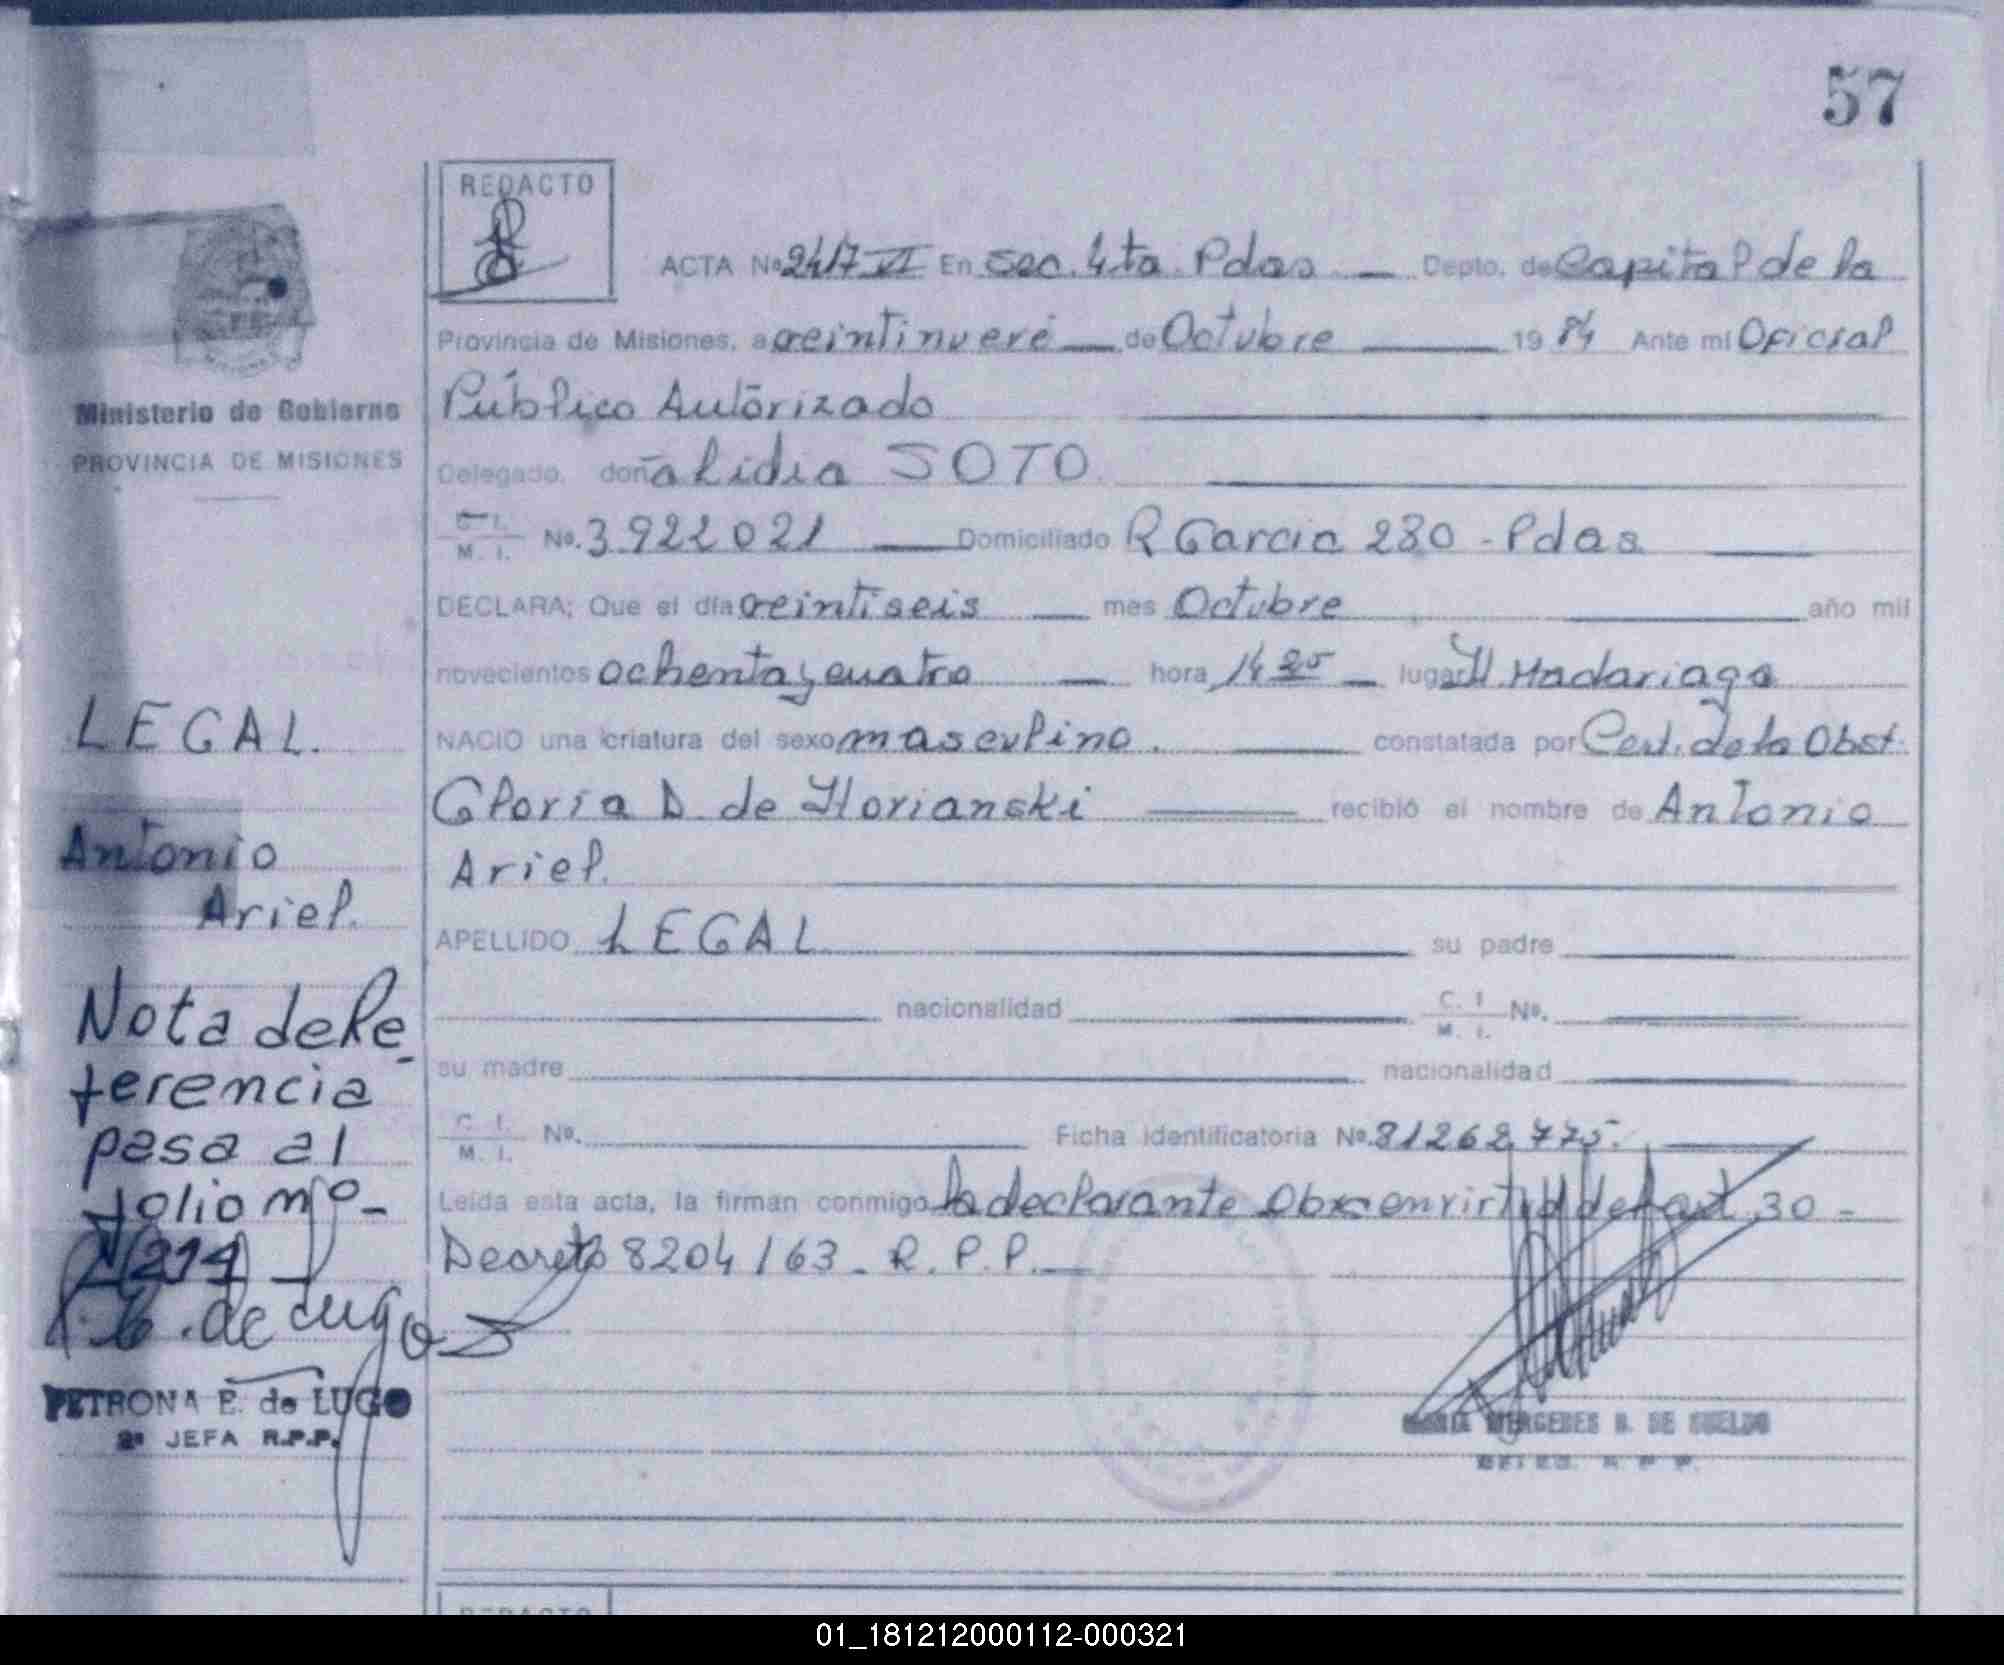 57
REDACTO
ACTA No 2417 VI En Sec. 4ta. Pdas Depto. de Capital de la
Provincia de Misiones, a veintinueve de Octubre 19 84 Ante mi Oficial
Público Autorizado
Ministerio de Gobierno
PROVINCIA DE MISIONES
Delegado, doña Lidia SOTO
C. I. M. I. No. 3.922.021 Domiciliado R Garcia 280 - Pdas
DECLARA; Que el día veintiseis mes Octubre año mil
novecientos ochenta y cuatro hora 14 25 lugar H Madariaga
NACIO una criatura del sexo masculino. constatada por Cert. de la Obst.
Gloria D. de Horianski recibió el nombre de Antonio
Ariel.
APELLIDO LEGAL su padre
nacionalidad C. I. M. I. No.
su madre nacionalidad
C. I. M. I. No. Ficha identificatoria No. 81262.775.
Leída esta acta, la firman conmigo la declarante en virtud del art 30 -
Decreto 8204/63 - R. P. P.
LEGAL.
Antonio
Ariel.
Nota de Re-
ferencia
pasa al
folio nº -
de Lugo
PETRONA E. de LUGO
2ª JEFA R.P.P.
MERCEDES DE SUELDO
REDACTO
01_181212000112-000321